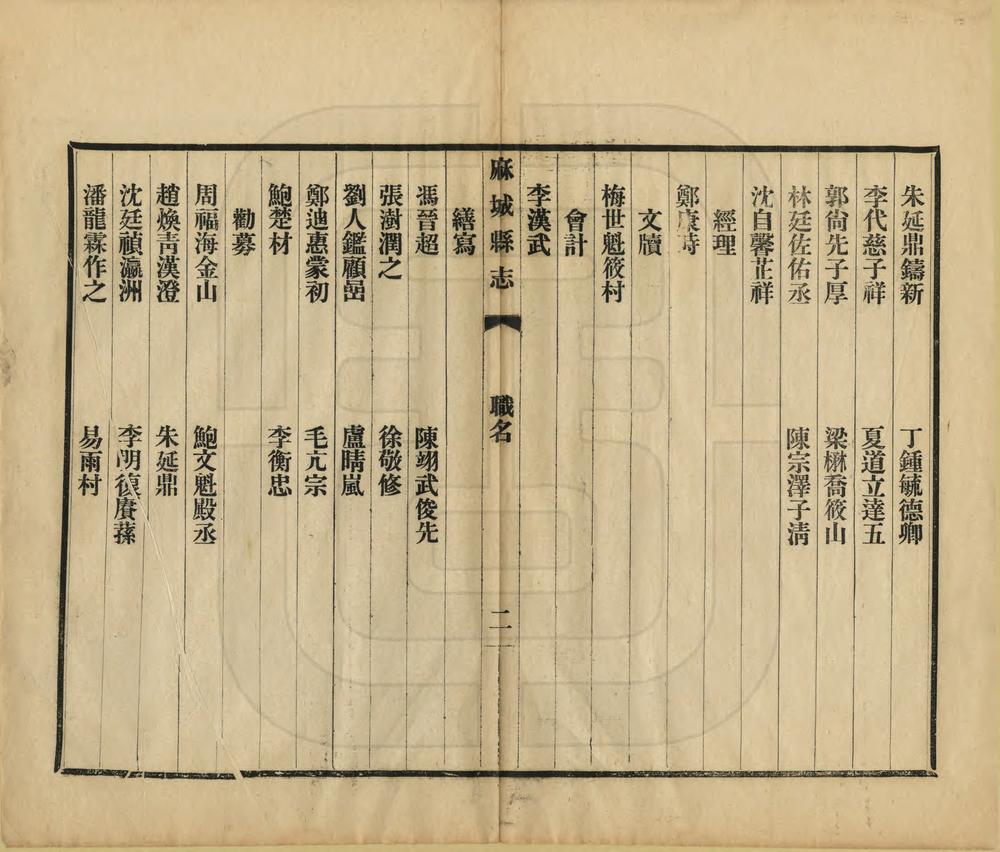 朱延鼎鑄新　丁鍾毓德卿
李代慈子祥　夏道立達五
郭尙先子厚　梁楙喬筱山
林廷佐佑丞　陳宗澤子清
沈自馨芷祥
經理
鄭康時
文牘
梅世魁筱村
會計
李漢武
麻城縣志　職名　二
繕寫
馮晉超　陳翊武俊先
張澍潤之　徐敬修
劉人鑑顧嵒　盧晴嵐
鄭迪惠蒙初　毛亢宗
鮑楚材　李衡忠
勸募
周福海金山　鮑文魁殿丞
趙煥靑漢澄　朱延鼎
沈廷禎瀛洲　李明復賡蓀
潘龍霖作之　易雨村